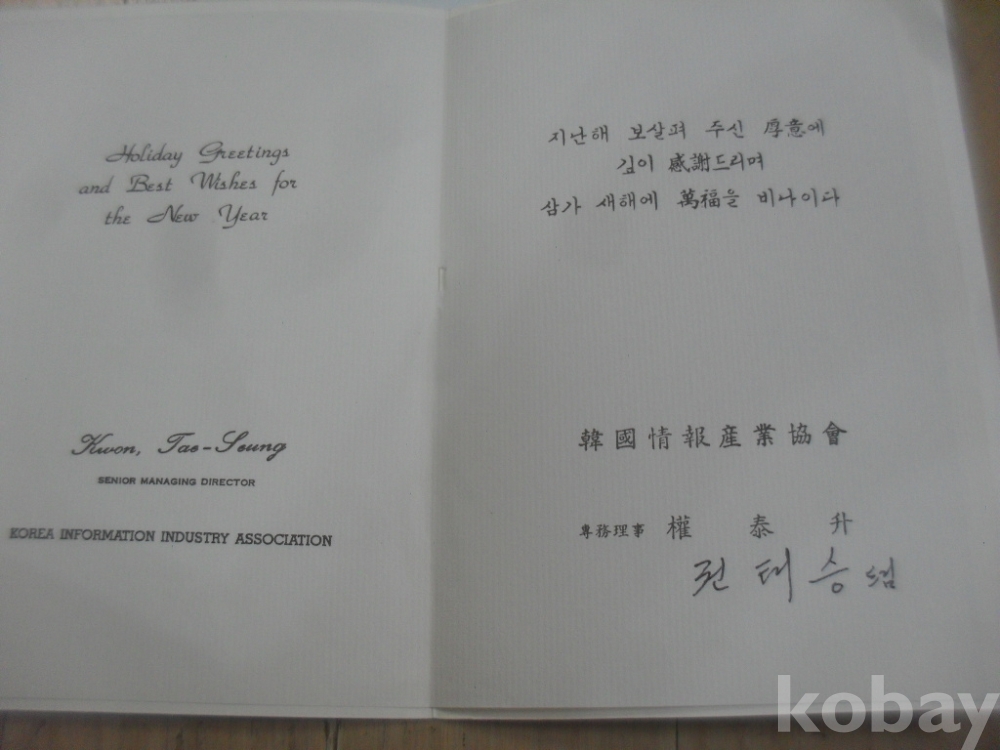 Holiday Greetings
and Best Wishes for
the New Year
Kwon, Tae-Seung
SENIOR MANAGING DIRECTOR
KOREA INFORMATION INDUSTRY ASSOCIATION
지난해 보살펴 주신 厚意에
깊이 感謝드리며
삼가 새해에 萬福을 비나이다
韓國情報産業協會
專務理事 權 泰 升
권 태 승
kobay